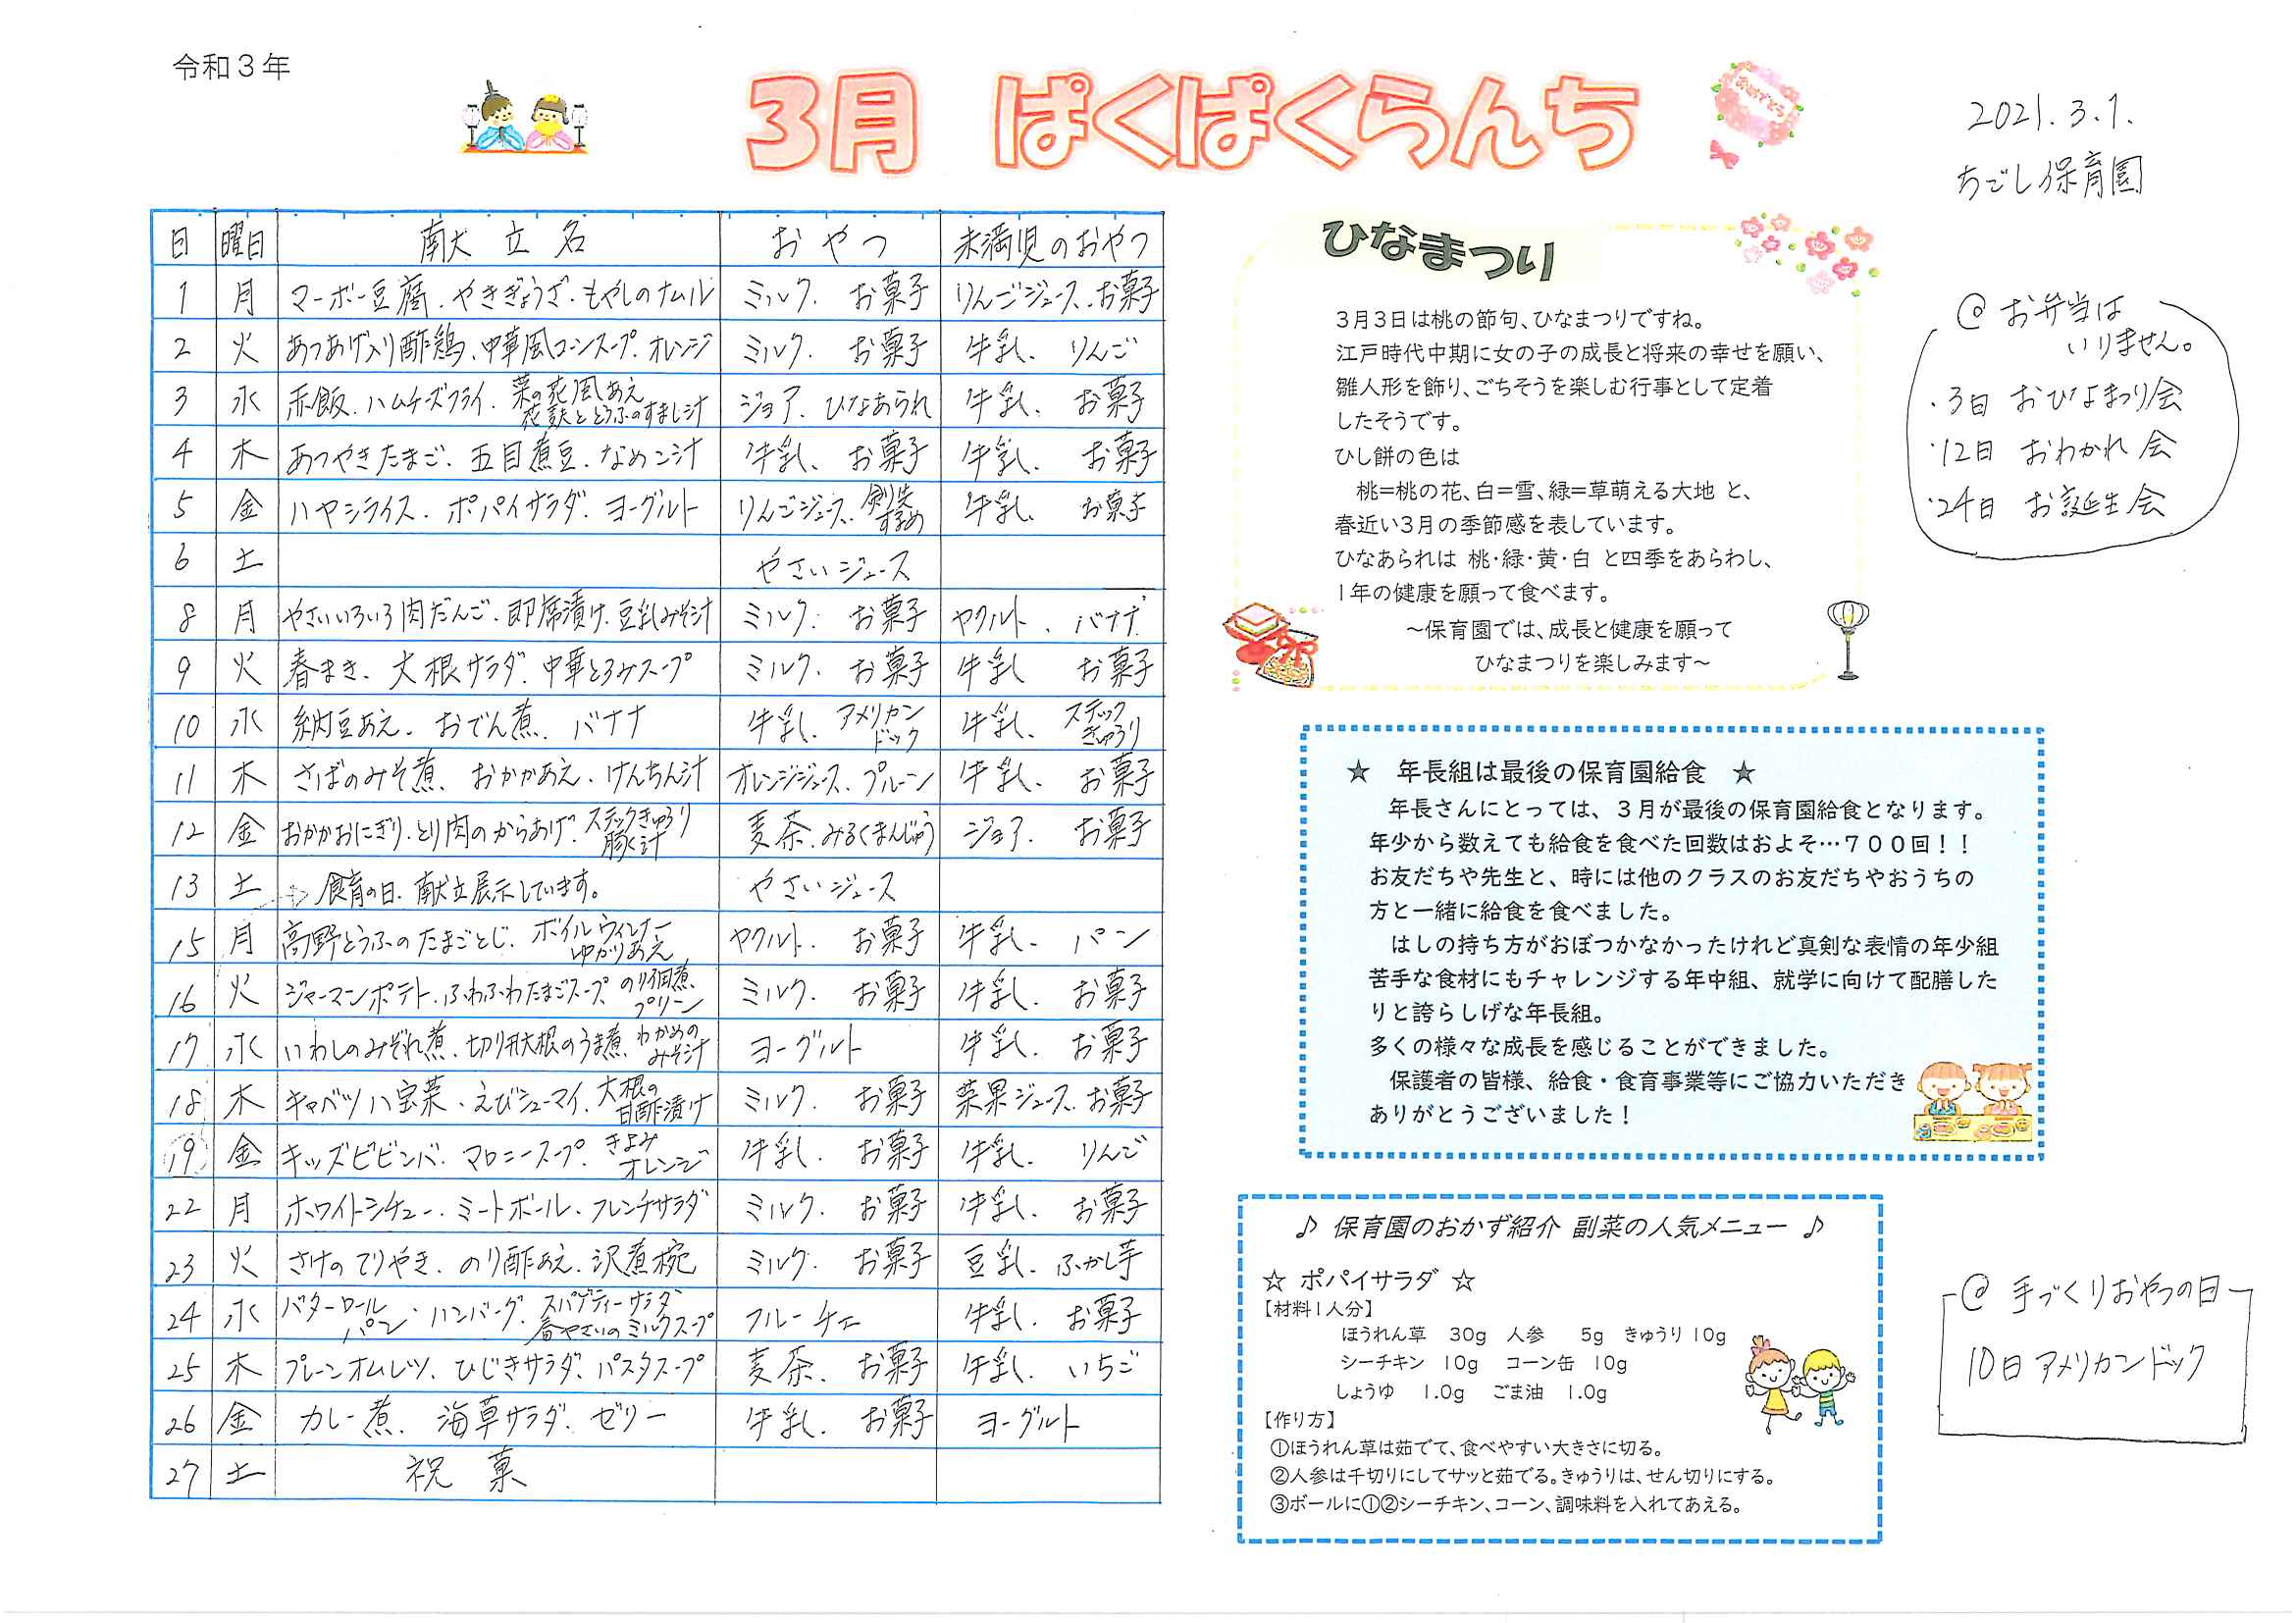 令和3年
3月 ぱくぱくらんち
おめでとう
2021.3.1.
ちごし保育園
日 曜日 献立名 おやつ 未満児のおやつ
1 月 マーボー豆腐、やきぎょうざ、もやしのナムル ミルク、お菓子 りんごジュース、お菓子
2 火 あつあげ入り酢鶏、中華風コーンスープ、オレンジ ミルク、お菓子 牛乳、りんご
3 水 赤飯、ハムチーズフライ、菜の花風あえ 花麩ととうふのすまし汁 ジョア、ひなあられ 牛乳、お菓子
4 木 あつやきたまご、五目煮豆、なめこ汁 牛乳、お菓子 牛乳、お菓子
5 金 ハヤシライス、ポパイサラダ、ヨーグルト りんごジュース、剣先するめ 牛乳、お菓子
6 土 やさいジュース
8 月 やさいいろいろ肉だんご、即席漬け、豆乳みそ汁 ミルク、お菓子 ヤクルト、バナナ
9 火 春まき、大根サラダ、中華とろみスープ ミルク、お菓子 牛乳 お菓子
10 水 納豆あえ、おでん煮、バナナ 牛乳、アメリカンドック 牛乳、スティックきゅうり
11 木 さばのみそ煮、おかかあえ、けんちん汁 オレンジジュース、プルーン 牛乳、お菓子
12 金 おかかおにぎり、とり肉のからあげ、スティックきゅうり 豚汁 麦茶、みるくまんじゅう ジョア、お菓子
13 土 →食育の日、献立展示しています。 やさいジュース
15 月 高野とうふのたまごとじ、ボイルウィンナー ゆかりあえ ヤクルト、お菓子 牛乳、パン
16 火 ジャーマンポテト、ふわふわたまごスープ、のり佃煮、プリーン ミルク、お菓子 牛乳、お菓子
17 水 いわしのみぞれ煮、切り干大根のうま煮、わかめのみそ汁 ヨーグルト 牛乳、お菓子
18 木 キャベツ八宝菜、えびシューマイ、大根の甘酢漬け ミルク、お菓子 菜果ジュース、お菓子
19 金 キッズビビンバ、マロニースープ、きよみオレンジ 牛乳、お菓子 牛乳、りんご
22 月 ホワイトシチュー、ミートボール、フレンチサラダ ミルク、お菓子 牛乳、お菓子
23 火 さけのてりやき、のり酢あえ、沢煮椀 ミルク、お菓子 豆乳、ふかし芋
24 水 バターロールパン、ハンバーグ、スパゲティーサラダ 春やさいのミルクスープ フルーチェ 牛乳、お菓子
25 木 プレーンオムレツ、ひじきサラダ、パスタスープ 麦茶、お菓子 牛乳、いちご
26 金 カレー煮、海草サラダ、ゼリー 牛乳、お菓子 ヨーグルト
27 土 祝菓
ひなまつり
3月3日は桃の節句、ひなまつりですね。
江戸時代中期に女の子の成長と将来の幸せを願い、
雛人形を飾り、ごちそうを楽しむ行事として定着
したそうです。
ひし餅の色は
桃=桃の花、白=雪、緑=草萌える大地 と、
春近い3月の季節感を表しています。
ひなあられは 桃・緑・黄・白 と四季をあらわし、
1年の健康を願って食べます。
～保育園では、成長と健康を願って
ひなまつりを楽しみます～
@ お弁当は
いりません。
・3日 おひなまつり会
・12日 おわかれ会
・24日 お誕生会
★ 年長組は最後の保育園給食 ★
年長さんにとっては、3月が最後の保育園給食となります。
年少から数えても給食を食べた回数はおよそ…700回！！
お友だちや先生と、時には他のクラスのお友だちやおうちの
方と一緒に給食を食べました。
はしの持ち方がおぼつかなかったけれど真剣な表情の年少組
苦手な食材にもチャレンジする年中組、就学に向けて配膳した
りと誇らしげな年長組。
多くの様々な成長を感じることができました。
保護者の皆様、給食・食育事業等にご協力いただき
ありがとうございました！
♪ 保育園のおかず紹介 副菜の人気メニュー ♪
☆ ポパイサラダ ☆
【材料1人分】
ほうれん草 30g 人参 5g きゅうり 10g
シーチキン 10g コーン缶 10g
しょうゆ 1.0g ごま油 1.0g
【作り方】
①ほうれん草は茹でて、食べやすい大きさに切る。
②人参は千切りにしてサッと茹でる。きゅうりは、せん切りにする。
③ボールに①②シーチキン、コーン、調味料を入れてあえる。
@ 手づくりおやつの日
10日 アメリカンドック